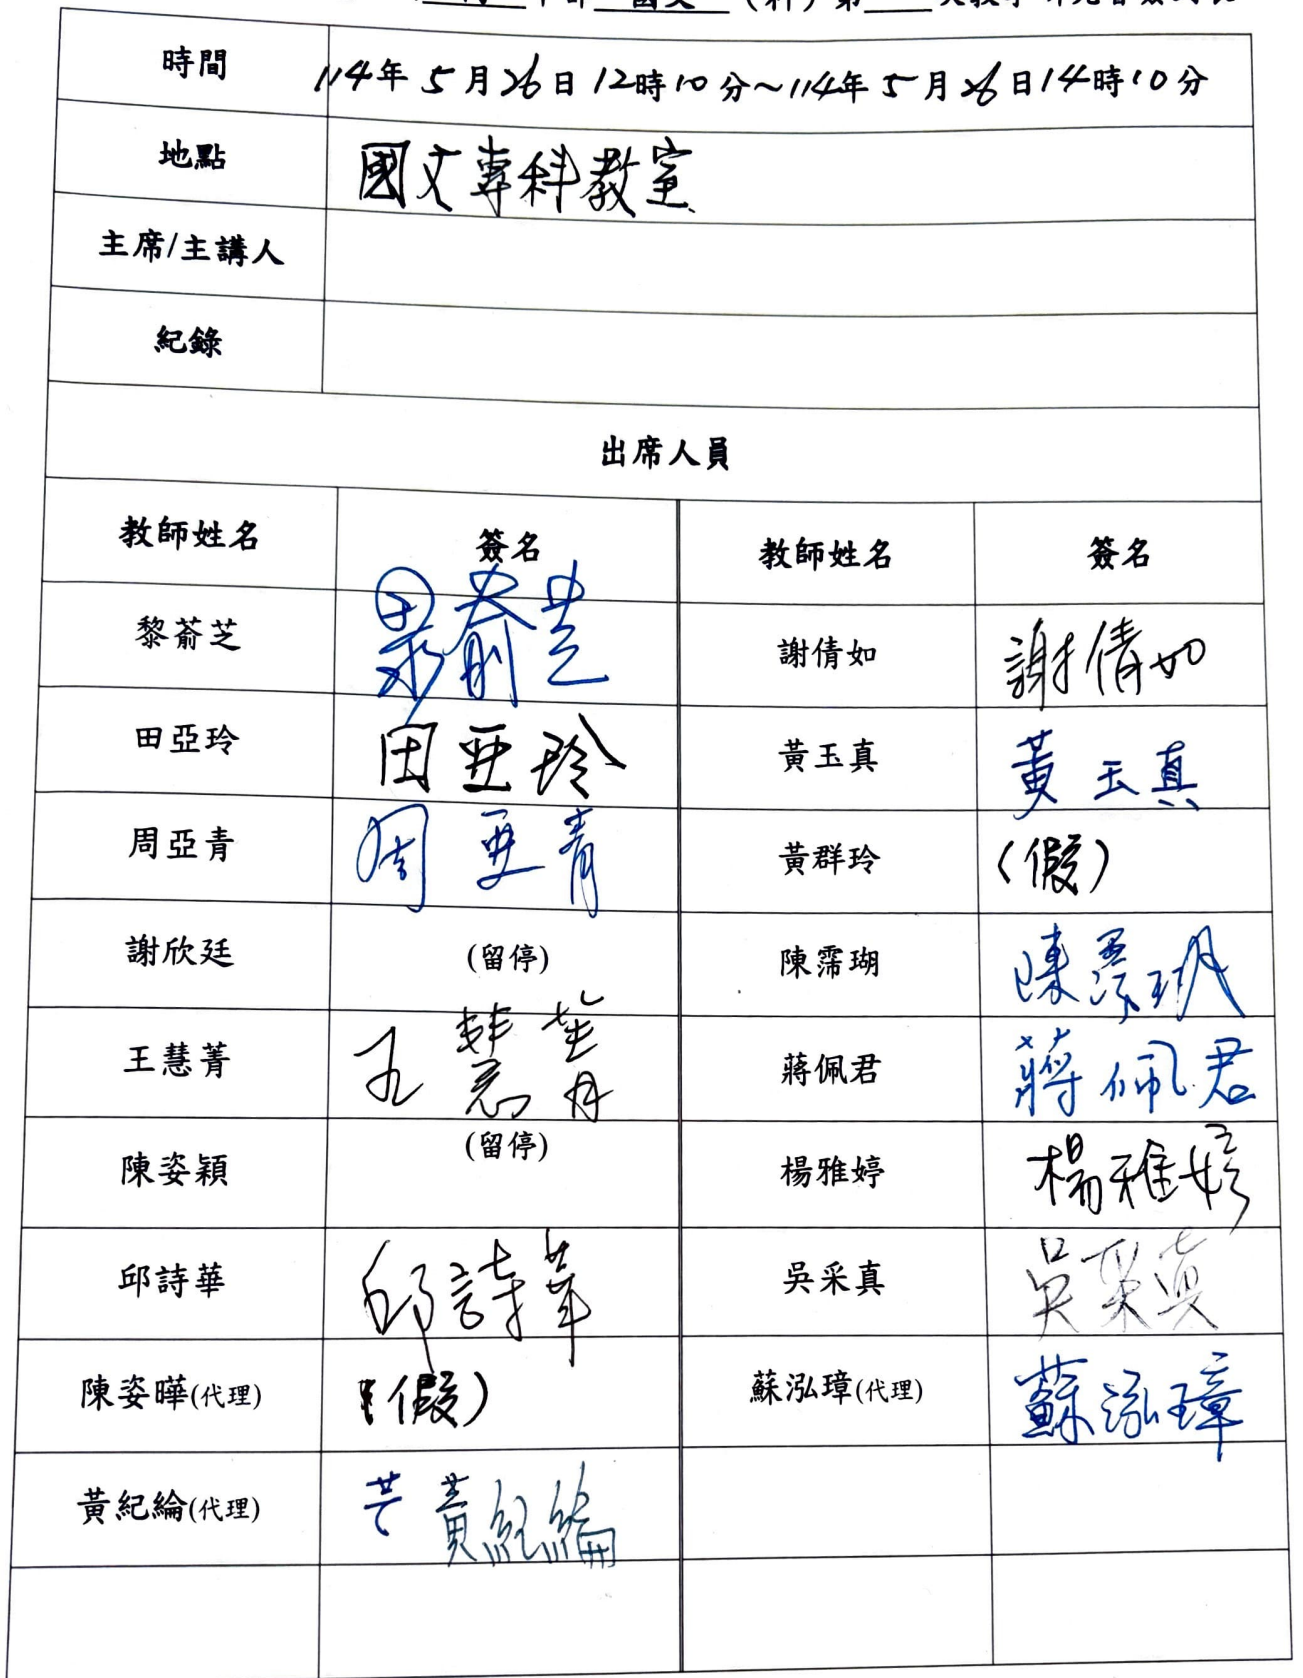 國文 (科) 第
時間 114年5月26日12時10分～114年5月26日14時10分
地點 國文專科教室
主席/主講人
紀錄
出席人員
教師姓名 簽名 教師姓名 簽名
黎萮芝 黎萮芝 謝倩如 謝倩如
田亞玲 田亞玲 黃玉真 黃玉真
周亞青 周亞青 黃群玲 (假)
謝欣廷 (留停) 陳霈瑚 陳霈瑚
王慧菁 王慧菁 蔣佩君 蔣佩君
陳姿穎 (留停) 楊雅婷 楊雅婷
邱詩華 邱詩華 吳采真 吳采真
陳姿曄(代理) (假) 蘇泓璋(代理) 蘇泓璋
黃紀綸(代理) 黃紀綸